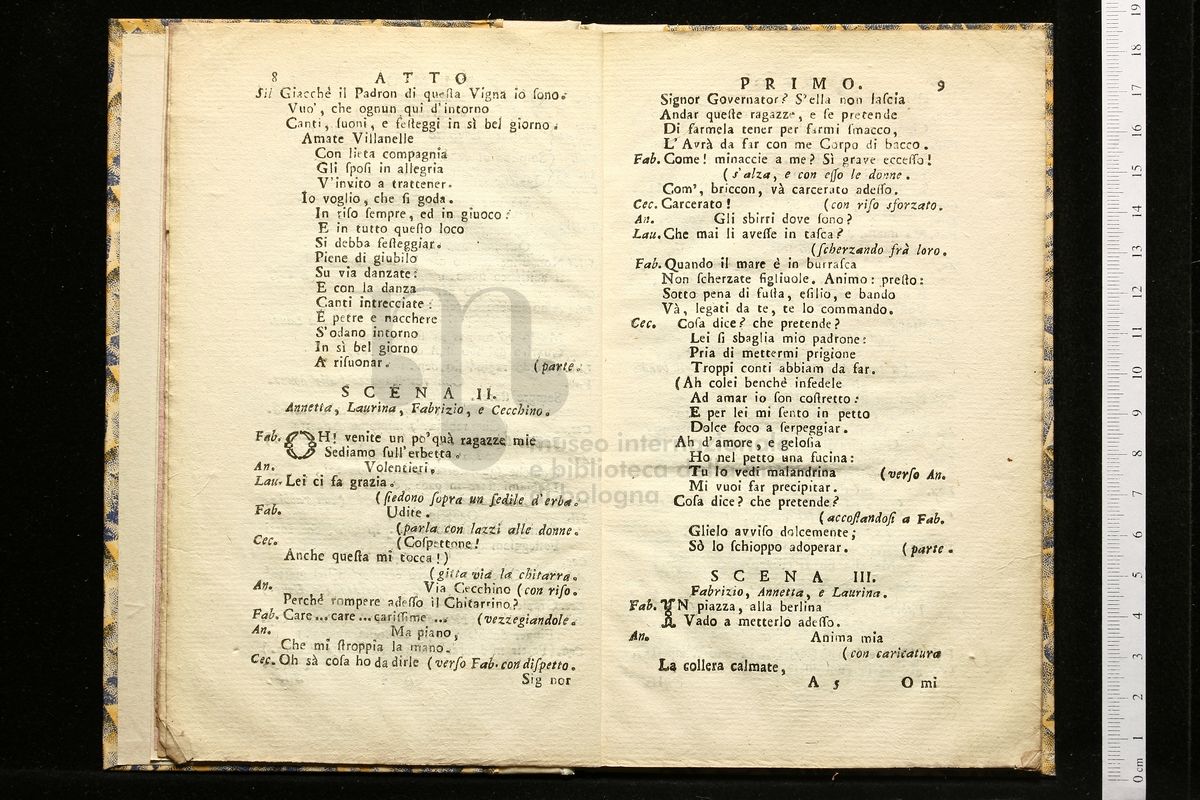 8 ATTO
Sil Giacchè il Padron di queſta Vigna io ſono.
Vuo', che ognun qui d'intorno
Canti, ſuoni, e feſteggi in sì bel giorno.
Amate Villanelle
Con lieta compagnia
Gli ſpoſi in allegria
V'invito a trattener.
Io voglio, che ſi goda.
In riſo ſempre, ed in giuoco:
E in tutto queſto loco
Si debba feſteggiar.
Piene di giubilo
Su via danzate:
E con la danza
Canti intrecciate:
E petre e nacchere
S'odano intorno
In sì bel giorno
A riſuonar. (parte.
SCENA II.
Annetta, Laurina, Fabrizio, e Cecchino.
Fab. OH! venite un po'quà ragazze mie
Sediamo ſull'erbetta.
An. Volentieri,
Lau. Lei ci fa grazia.
(ſiedono ſopra un ſedile d'erba.
Fab. Udite.
(parla con lazzi alle donne.
Cec. (Coſpettone!
Anche queſta mi tocca!)
(gitta via la chitarra.
An. Via Cecchino (con riſo.
Perchè rompere adeſſo il Chitarrino?
Fab. Care ... care ... cariſſime ... (vezzegiandole.
An. Ma piano,
Che mi ſtroppia la mano.
Cec. Oh sà coſa ho da dirle (verſo Fab. con diſpetto.
Sig nor
PRIMO. 9
Signor Governator? S'ella non laſcia
Andar queſte ragazze, e ſe pretende
Di farmela tener per farmi ſmacco,
L'Avrà da far con me Corpo di bacco.
Fab. Come! minaccie a me? Sì grave ecceſſo!
(s'alza, e con eſſo le donne.
Com', briccon, và carcerato adeſſo.
Cec. Carcerato! (con riſo sforzato.
An. Gli sbirri dove ſono?
Lau. Che mai li aveſſe in taſca?
(ſcherzando frà loro.
Fab. Quando il mare è in burraſca
Non ſcherzate figliuole. Animo: preſto:
Sotto pena di fuſta, eſilio, e bando
Và, legati da te, te lo commando.
Cec. Coſa dice? che pretende?
Lei ſi sbaglia mio padrone:
Pria di mettermi prigione
Troppi conti abbiam da far.
(Ah colei benchè infedele
Ad amar io ſon coſtretto:
E per lei mi ſento in petto
Dolce foco a ſerpeggiar.
Ah d'amore, e geloſia
Ho nel petto una fucina:
Tu lo vedi malandrina (verſo An.
Mi vuoi far precipitar.
Coſa dice? che pretende?
(accoſtandoſi a Fab.
Glielo avviſo dolcemente;
Sò lo ſchioppo adoperar. (parte.
SCENA III.
Fabrizio, Annetta, e Laurina.
Fab. IN piazza, alla berlina
Vado a metterlo adeſſo.
An. Anima mia
(con caricatura
La collera calmate,
A 5 O mi
museo inter
e biblioteca
bologna
0 cm 1 2 3 4 5 6 7 8 9 10 11 12 13 14 15 16 17 18 19